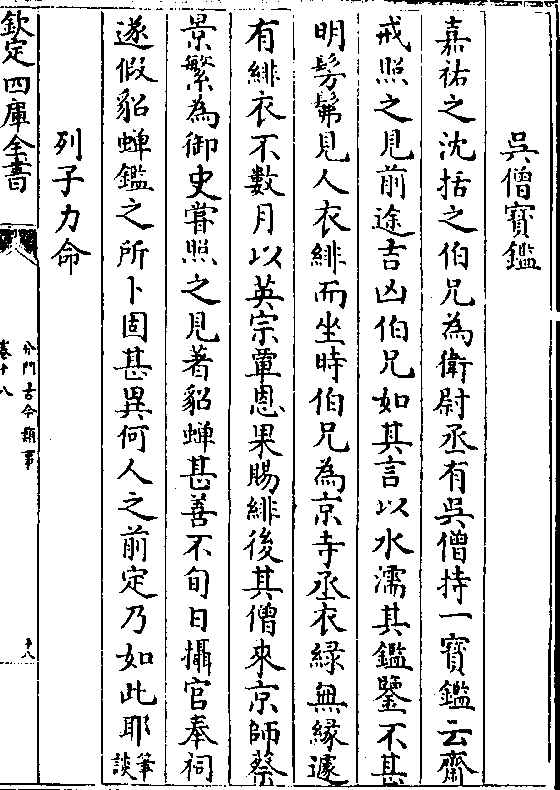 吳僧寳鑑
嘉祐之沈括之伯兄為衛尉丞有吳僧持一寳鑑云齋
戒照之見前途吉凶伯兄如其言以水濡其鑑鑒不甚
明髣髴見人衣緋而坐時伯兄為京寺丞衣緑無縁遽
有緋衣不數月以英宗覃恩果賜緋後其僧來京師蔡
景繁為御史嘗照之見著貂蟬甚善不旬日攝官奉祠
遂假貂蟬鑑之所卜固甚異何人之前定乃如此耶筆談
列子力命
欽定四庫全書
分門古今類事
卷十八